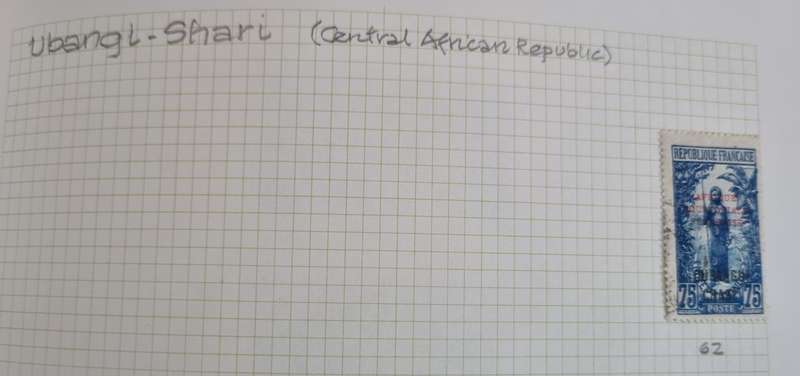 Ubangi-Shari (Central African Republic)
REPUBLIQUE FRANÇAISE
75 75
POSTE
62